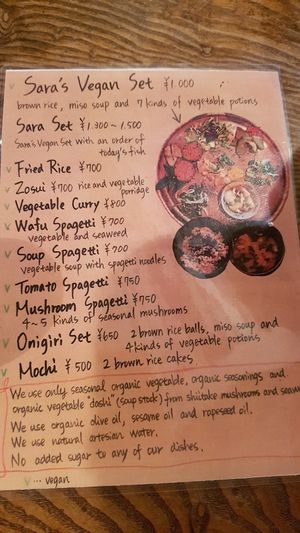 v Sara's Vegan Set ¥1.000
brown rice, miso soup and 7 kinds of vegetable potions
Sara Set ¥1.300~1.500
Sara's Vegan Set with an order of
today's fish
v Fried Rice ¥700
v Zosui ¥700 rice and vegetable
porridge
v Vegetable Curry ¥800
v Wafu Spagetti ¥700
vegetable and seaweed
v Soup Spagetti ¥700
vegetable soup with spagetti noodles
v Tomato Spagetti ¥750
v Mushroom Spagetti ¥750
4~5 kinds of seasonal mushrooms
v Onigiri Set ¥650 2 brown rice balls, miso soup and
4 kinds of vegetable potions
v Mochi ¥500 2 brown rice cakes.
We use only seasonal organic vegetable, organic seasonings and
organic vegetable "dashi" (soup stock) from shiitake mushrooms and
We use organic olive oil, sesame oil and rapeseed oil.
We use natural artesian water.
No added sugar to any of our dishes.
v ... vegan